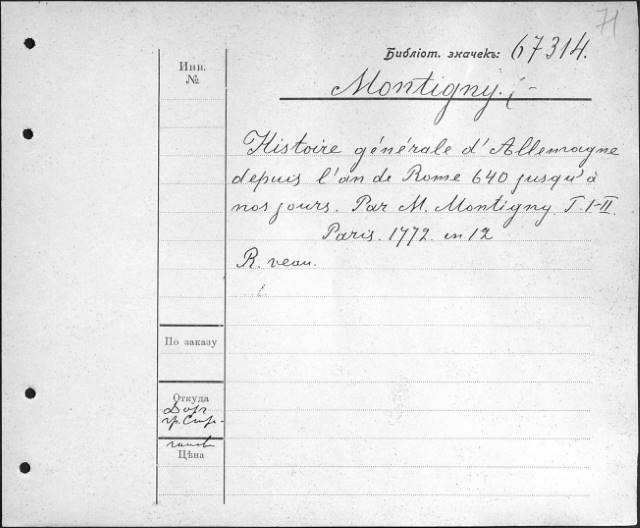 71
Библіот. значекъ: 67314.
Инв.
№
Montigny.
Histoire générale d'Allemagne
depuis l'an de Rome 640 jusqu'à
nos jours. Par M. Montigny. T. I-II.
Paris. 1772. in 12
R. veau.
По заказу
Откуда
гр.
Цѣна